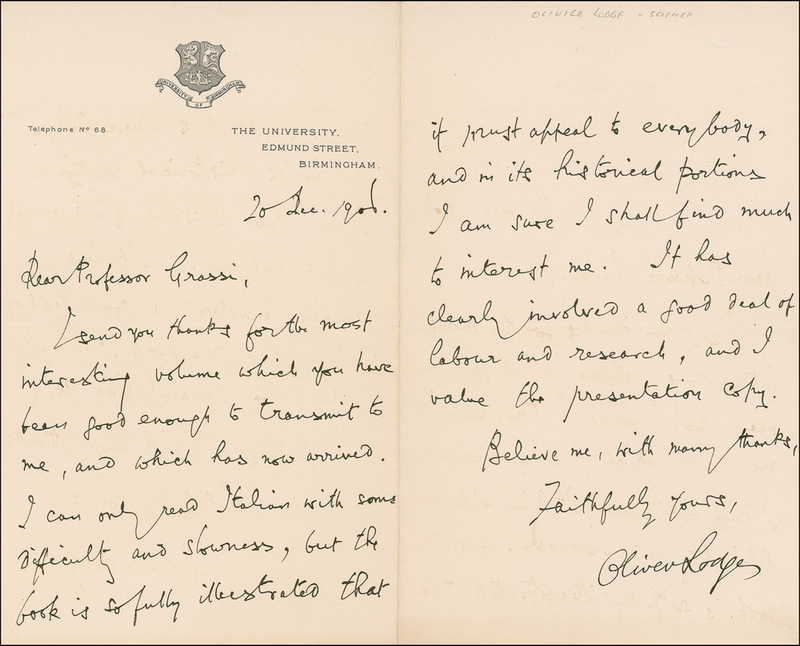 OLIVIER LODGE - SCIENCE
UNIVERSITY OF BIRMINGHAM
Telephone Nº 68.
THE UNIVERSITY,
EDMUND STREET,
BIRMINGHAM.
20 Dec. 1906.
Dear Professor Grassi,
I send you thanks for the most
interesting volume which you have
been good enough to transmit to
me, and which has now arrived.
I can only read Italian with some
difficulty and slowness, but the
book is so fully illustrated that
it must appeal to everybody,
and in its historical portions
I am sure I shall find much
to interest me. It has
clearly involved a good deal of
labour and research, and I
value the presentation copy.
Believe me, with many thanks,
Faithfully yours,
Oliver Lodge